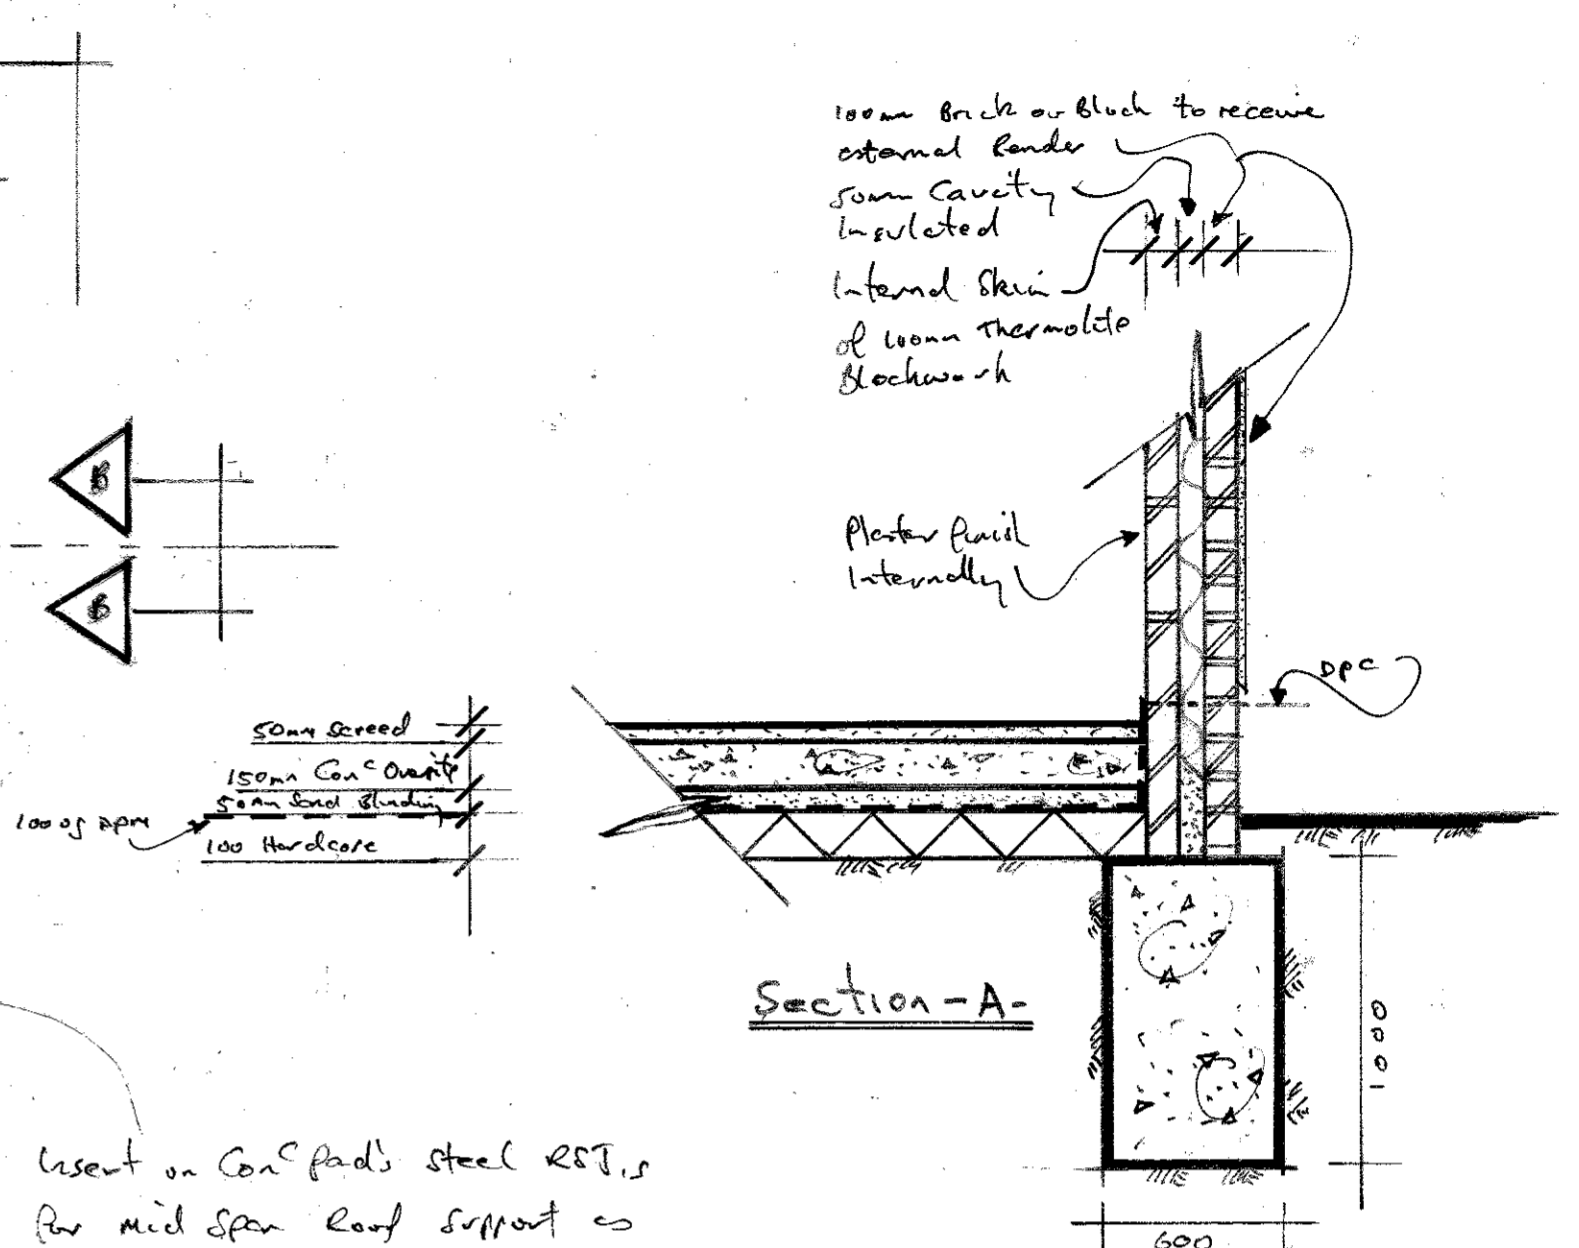 100mm Brick or Block to receive
external Render
50mm Cavity
Insulated
Internal Skin
of 100mm Thermolite
Blockwork
Plaster finish
Internally
DPC
B
B
50mm Screed
150mm Conc Oversite
50mm Sand Blinding
1000g DPM
100 Hardcore
Section -A-
1000
600
Insert on Conc Pad's Steel RSJ,s
for mid Span Roof Support as